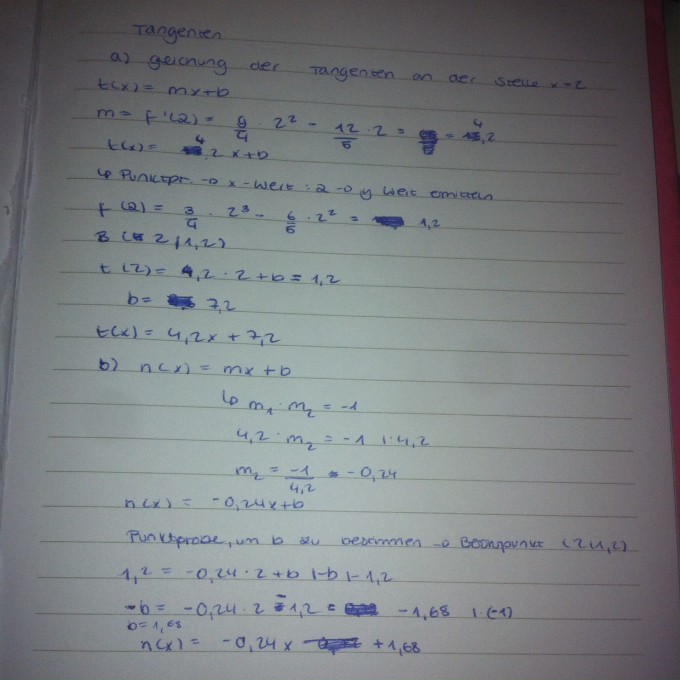 Tangenten
a) geichung der Tangenten an der Stelle x=2
t(x) = mx+b
m= f'(2) = 9/4 · 2² - 12/5 · 2 = = 4,2
t(x) = 4,2x+b
↳ Punktpr. → x-Wert: 2 → y Wert ermitteln
f(2) = 3/4 · 2³ - 6/5 · 2² = 1,2
B (2|1,2)
t(2) = 4,2 · 2 + b = 1,2
b= 7,2
t(x) = 4,2x + 7,2
b) n(x) = mx+b
↳ m₁ · m₂ = -1
4,2 · m₂ = -1 |· 4,2
m₂ = -1/4,2 = -0,24
n(x) = -0,24x+b
Punktprobe, um b zu bestimmen → Berührpunkt (2|1,2)
1,2 = -0,24 · 2 + b |-b |-1,2
-b = -0,24 · 2 - 1,2 = -1,68 |·(-1)
b=1,68
n(x) = -0,24x +1,68